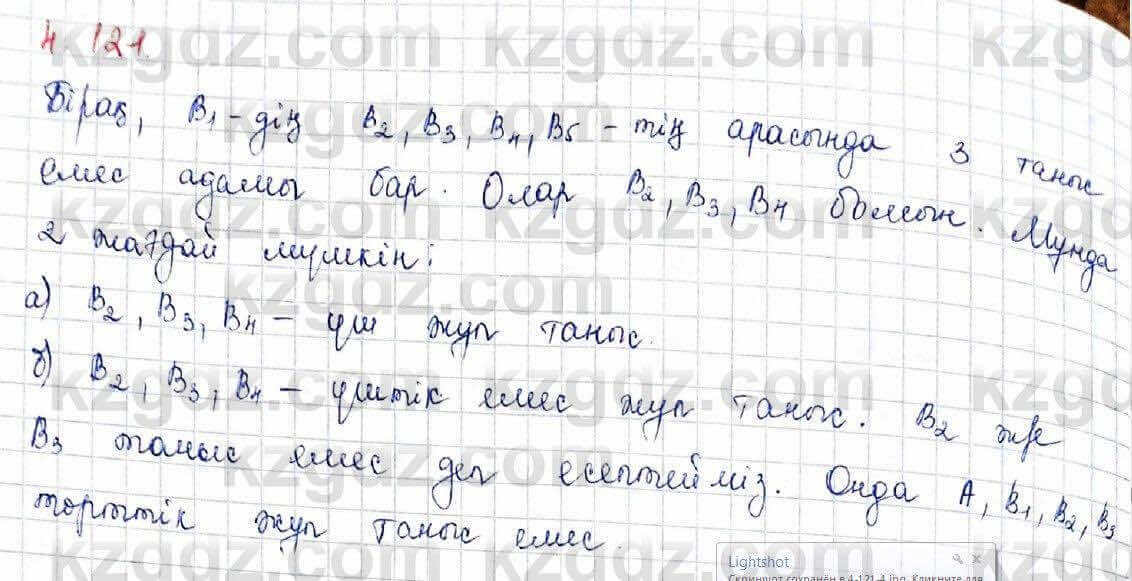 4. 121.
Бірақ, B1-дің B2, B3, B4, B5 - тің арасында 3 таныс
емес адамы бар. Олар B2, B3, B4 болсын. Мұнда
2 жағдай мүмкін:
а) B2, B3, B4 - үш жұп таныс.
б) B2, B3, B4 - үштік емес жұп таныс. B2 және
B3 таныс емес деп есептейміз. Онда A, B1, B2, B3
төрттік жұп таныс емес.
kzgdz.com
Lightshot
Скриншот сохранён в 4-121-4.jpg. Кликните для